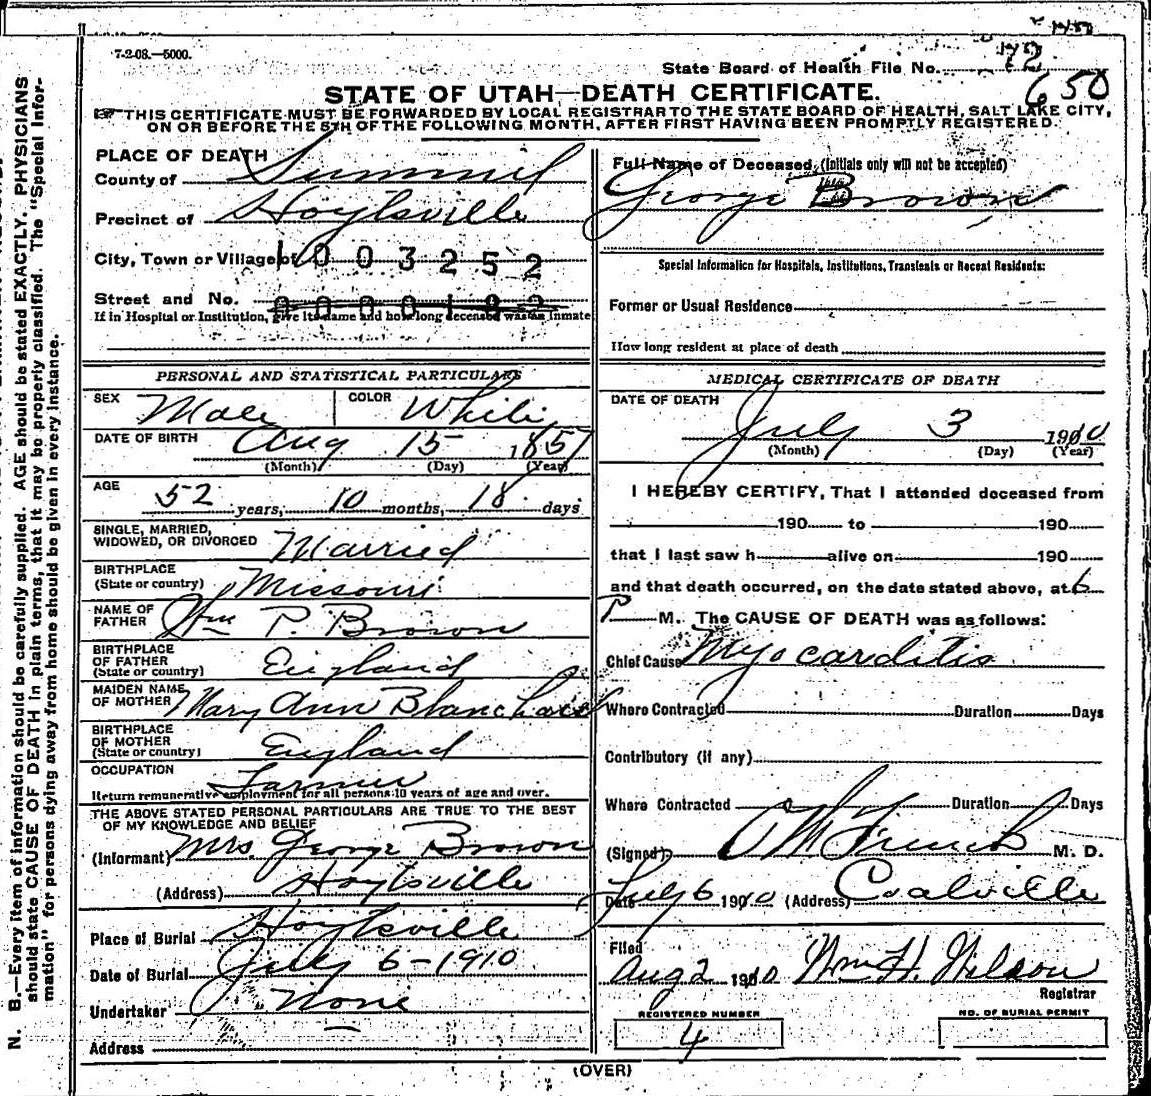 7-2-08.—5000.
State Board of Health File No. 12
650
STATE OF UTAH—DEATH CERTIFICATE.
THIS CERTIFICATE MUST BE FORWARDED BY LOCAL REGISTRAR TO THE STATE BOARD OF HEALTH, SALT LAKE CITY,
ON OR BEFORE THE 5TH OF THE FOLLOWING MONTH, AFTER FIRST HAVING BEEN PROMPTLY REGISTERED.
PLACE OF DEATH
County of Summit
Precinct of Hoytsville
City, Town or Village of 1003252
Street and No. 0000182
If in Hospital or Institution, give its name and how long deceased was an inmate
PERSONAL AND STATISTICAL PARTICULARS
SEX Male COLOR White
DATE OF BIRTH Aug 15 1857
(Month) (Day) (Year)
AGE 52 years, 10 months, 18 days
SINGLE, MARRIED,
WIDOWED, OR DIVORCED Married
BIRTHPLACE
(State or country) Missouri
NAME OF
FATHER Wm P. Brown
BIRTHPLACE
OF FATHER
(State or country) England
MAIDEN NAME
OF MOTHER Mary Ann Blanchard
BIRTHPLACE
OF MOTHER
(State or country) England
OCCUPATION Farmer
Return remunerative employment for all persons 10 years of age and over.
THE ABOVE STATED PERSONAL PARTICULARS ARE TRUE TO THE BEST
OF MY KNOWLEDGE AND BELIEF
(Informant) Mrs. George Brown
(Address) Hoytsville
Place of Burial Hoytsville
Date of Burial July 6-1910
Undertaker None
Address
Full Name of Deceased, (Initials only will not be accepted)
George Brown
Special Information for Hospitals, Institutions, Transients or Recent Residents:
Former or Usual Residence
How long resident at place of death
MEDICAL CERTIFICATE OF DEATH
DATE OF DEATH
July 3 1910
(Month) (Day) (Year)
I HEREBY CERTIFY, That I attended deceased from
190 to 190
that I last saw h alive on 190
and that death occurred, on the date stated above, at 6
P M. The CAUSE OF DEATH was as follows:
Chief Cause Myocarditis
Where Contracted Duration Days
Contributory (if any)
Where Contracted Duration Days
(Signed) French M. D.
Date July 6 1910 (Address) Coalville
Filed
Aug 2 1910 Wm H. Wilson
Registrar
REGISTERED NUMBER
4
NO. OF BURIAL PERMIT
(OVER)
N. B.—Every item of information should be carefully supplied. AGE should be stated EXACTLY. PHYSICIANS
should state CAUSE OF DEATH in plain terms, that it may be properly classified. The "Special Infor-
mation" for persons dying away from home should be given in every instance.